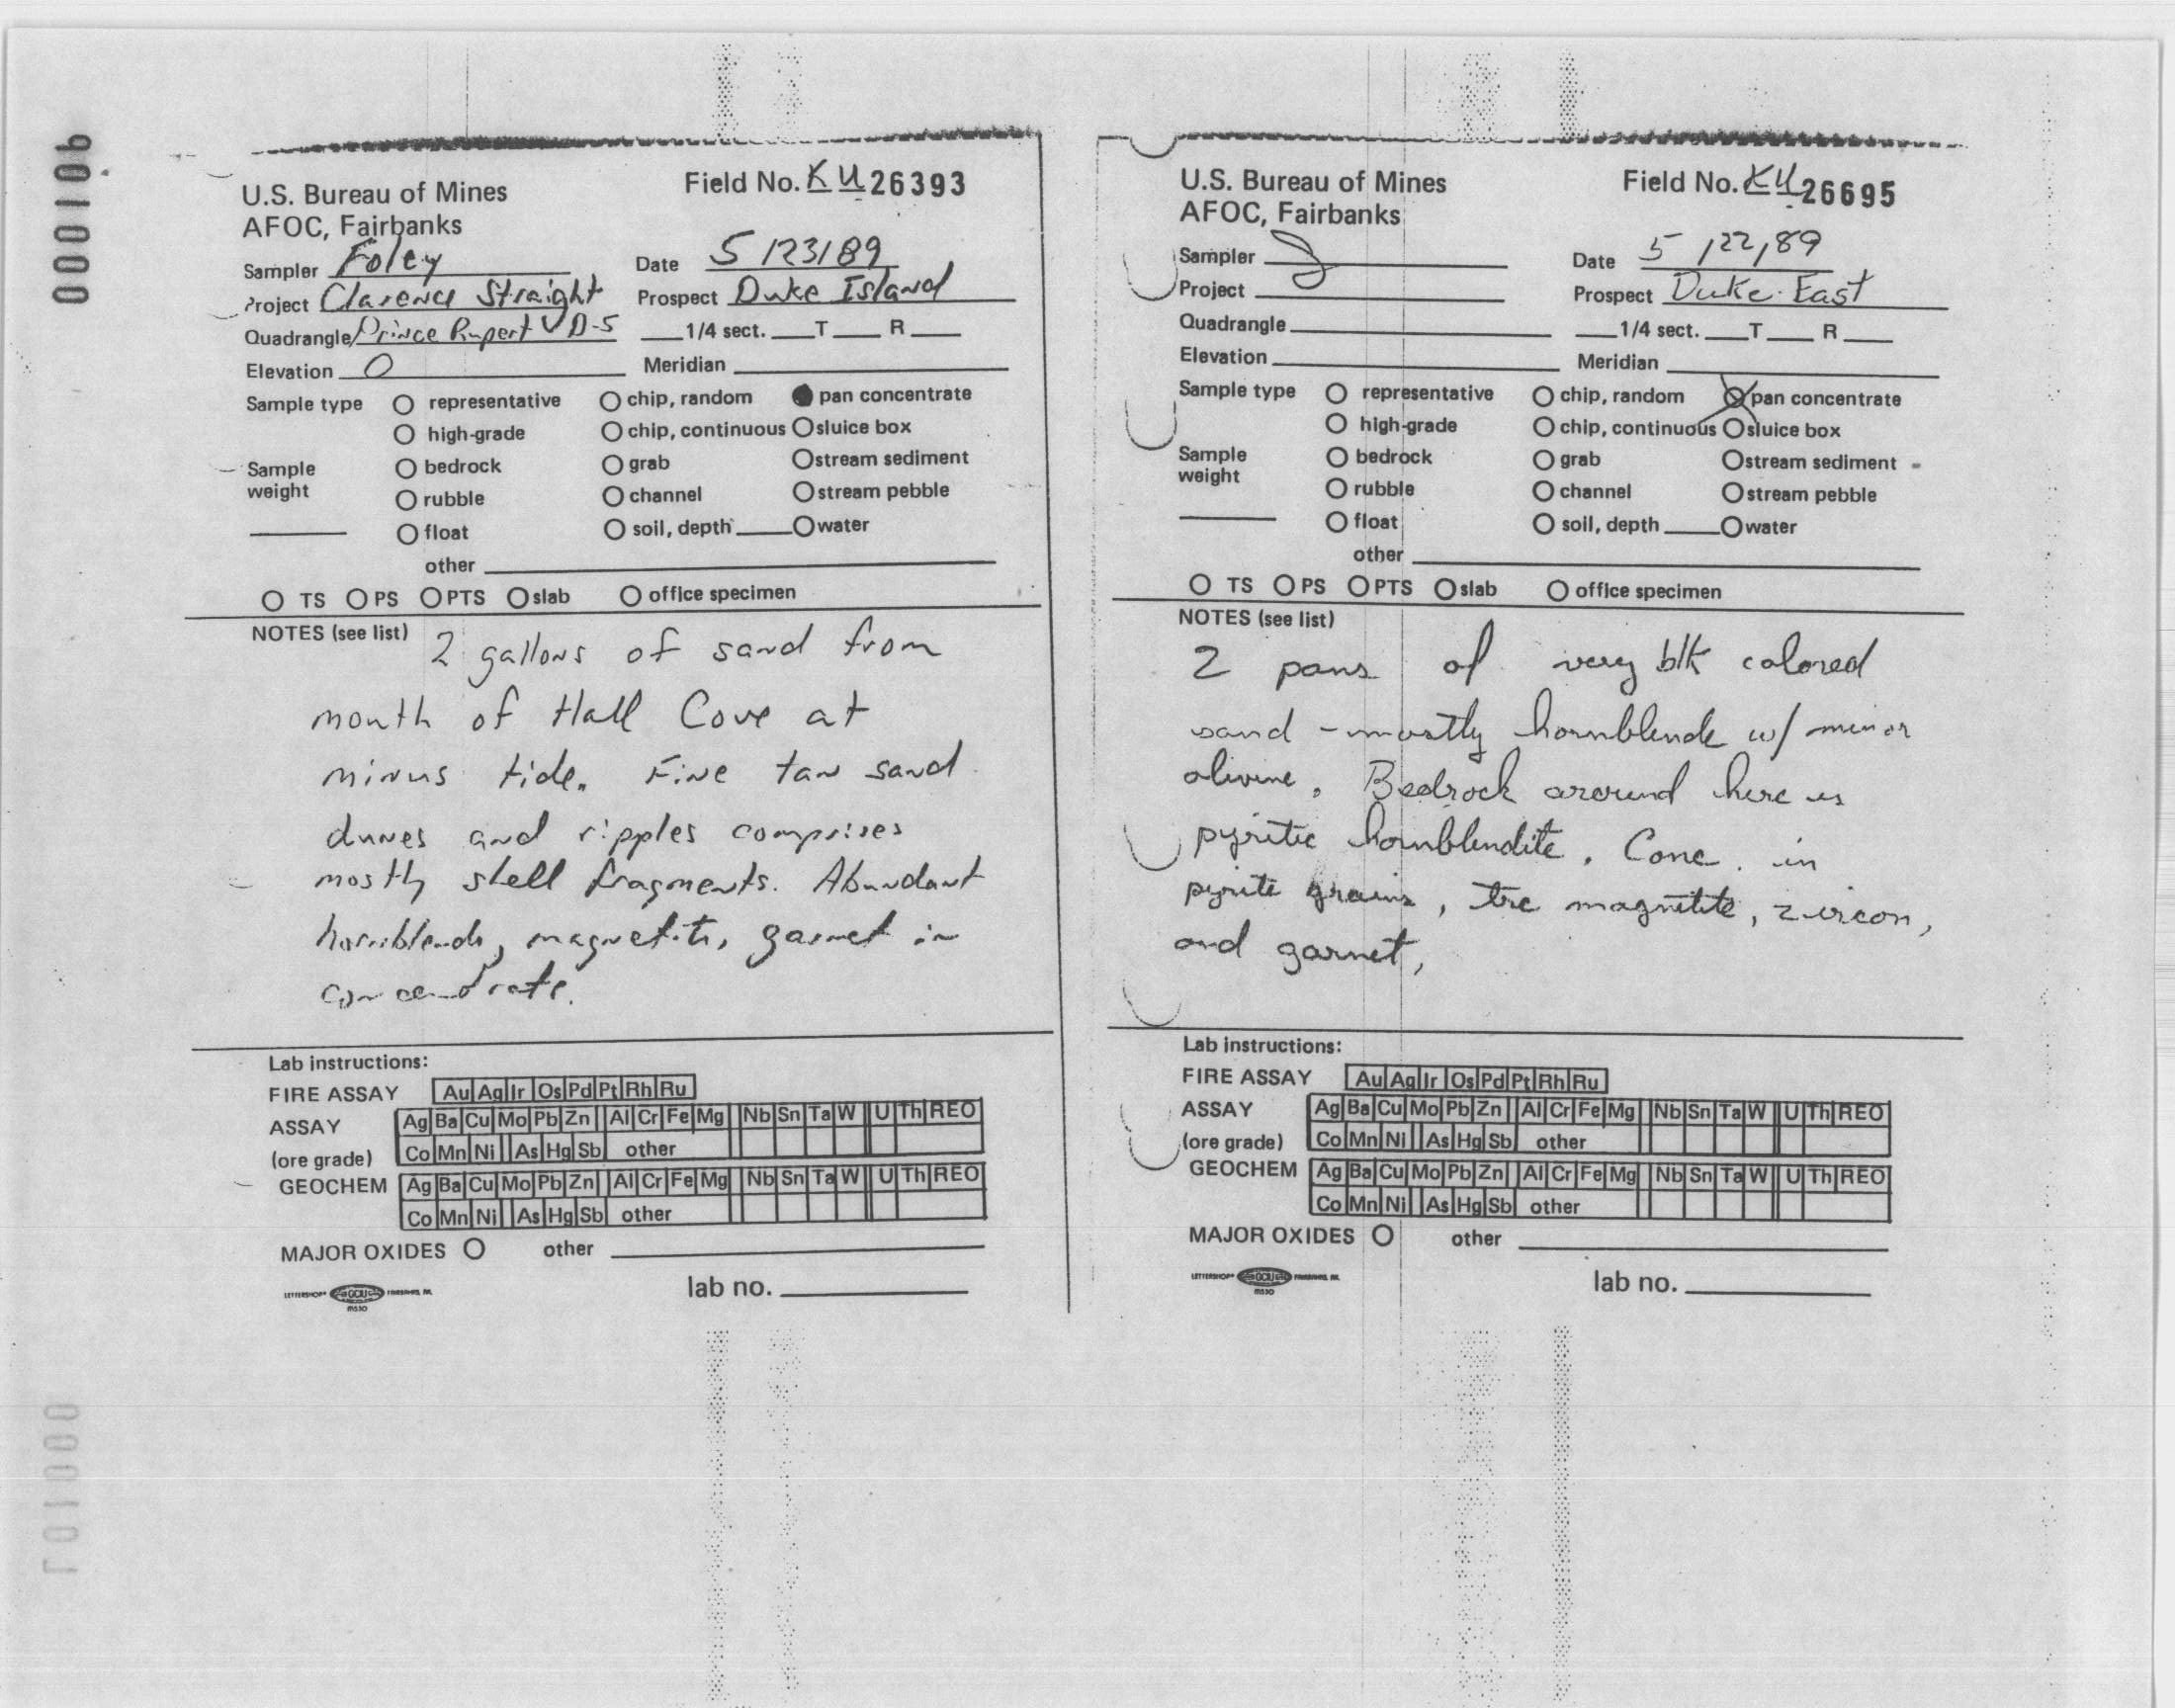 000106
U.S. Bureau of Mines
AFOC, Fairbanks
Field No. KU 26393
Sampler Foley
Date 5/23/89
Project Clarence Straight
Prospect Duke Island
Quadrangle Prince Rupert D-5
1/4 sect. ___ T ___ R ___
Elevation 0
Meridian
Sample type
O representative O chip, random ● pan concentrate
O high-grade O chip, continuous O sluice box
Sample weight
O bedrock O grab O stream sediment
O rubble O channel O stream pebble
O float O soil, depth ___ O water
other
O TS O PS O PTS O slab O office specimen
NOTES (see list) 2 gallons of sand from
mouth of Hall Cove at
minus tide. Fine tan sand
dunes and ripples comprises
mostly shell fragments. Abundant
hornblende, magnetite, garnet in
concentrate.
Lab instructions:
FIRE ASSAY Au Ag Ir Os Pd Pt Rh Ru
ASSAY Ag Ba Cu Mo Pb Zn Al Cr Fe Mg Nb Sn Ta W U Th REO
(ore grade) Co Mn Ni As Hg Sb other
GEOCHEM Ag Ba Cu Mo Pb Zn Al Cr Fe Mg Nb Sn Ta W U Th REO
Co Mn Ni As Hg Sb other
MAJOR OXIDES O other
lab no.
U.S. Bureau of Mines
AFOC, Fairbanks
Field No. KU 26695
Sampler
Date 5/22/89
Project
Prospect Duke East
Quadrangle
1/4 sect. ___ T ___ R ___
Elevation
Meridian
Sample type
O representative O chip, random ⊗ pan concentrate
O high-grade O chip, continuous O sluice box
Sample weight
O bedrock O grab O stream sediment
O rubble O channel O stream pebble
O float O soil, depth ___ O water
other
O TS O PS O PTS O slab O office specimen
NOTES (see list)
2 pans of very blk colored
sand - mostly hornblende w/ minor
olivine. Bedrock around here is
pyritic hornblendite. Conc. in
pyrite grains, trc magnetite, zircon,
and garnet,
Lab instructions:
FIRE ASSAY Au Ag Ir Os Pd Pt Rh Ru
ASSAY Ag Ba Cu Mo Pb Zn Al Cr Fe Mg Nb Sn Ta W U Th REO
(ore grade) Co Mn Ni As Hg Sb other
GEOCHEM Ag Ba Cu Mo Pb Zn Al Cr Fe Mg Nb Sn Ta W U Th REO
Co Mn Ni As Hg Sb other
MAJOR OXIDES O other
lab no.